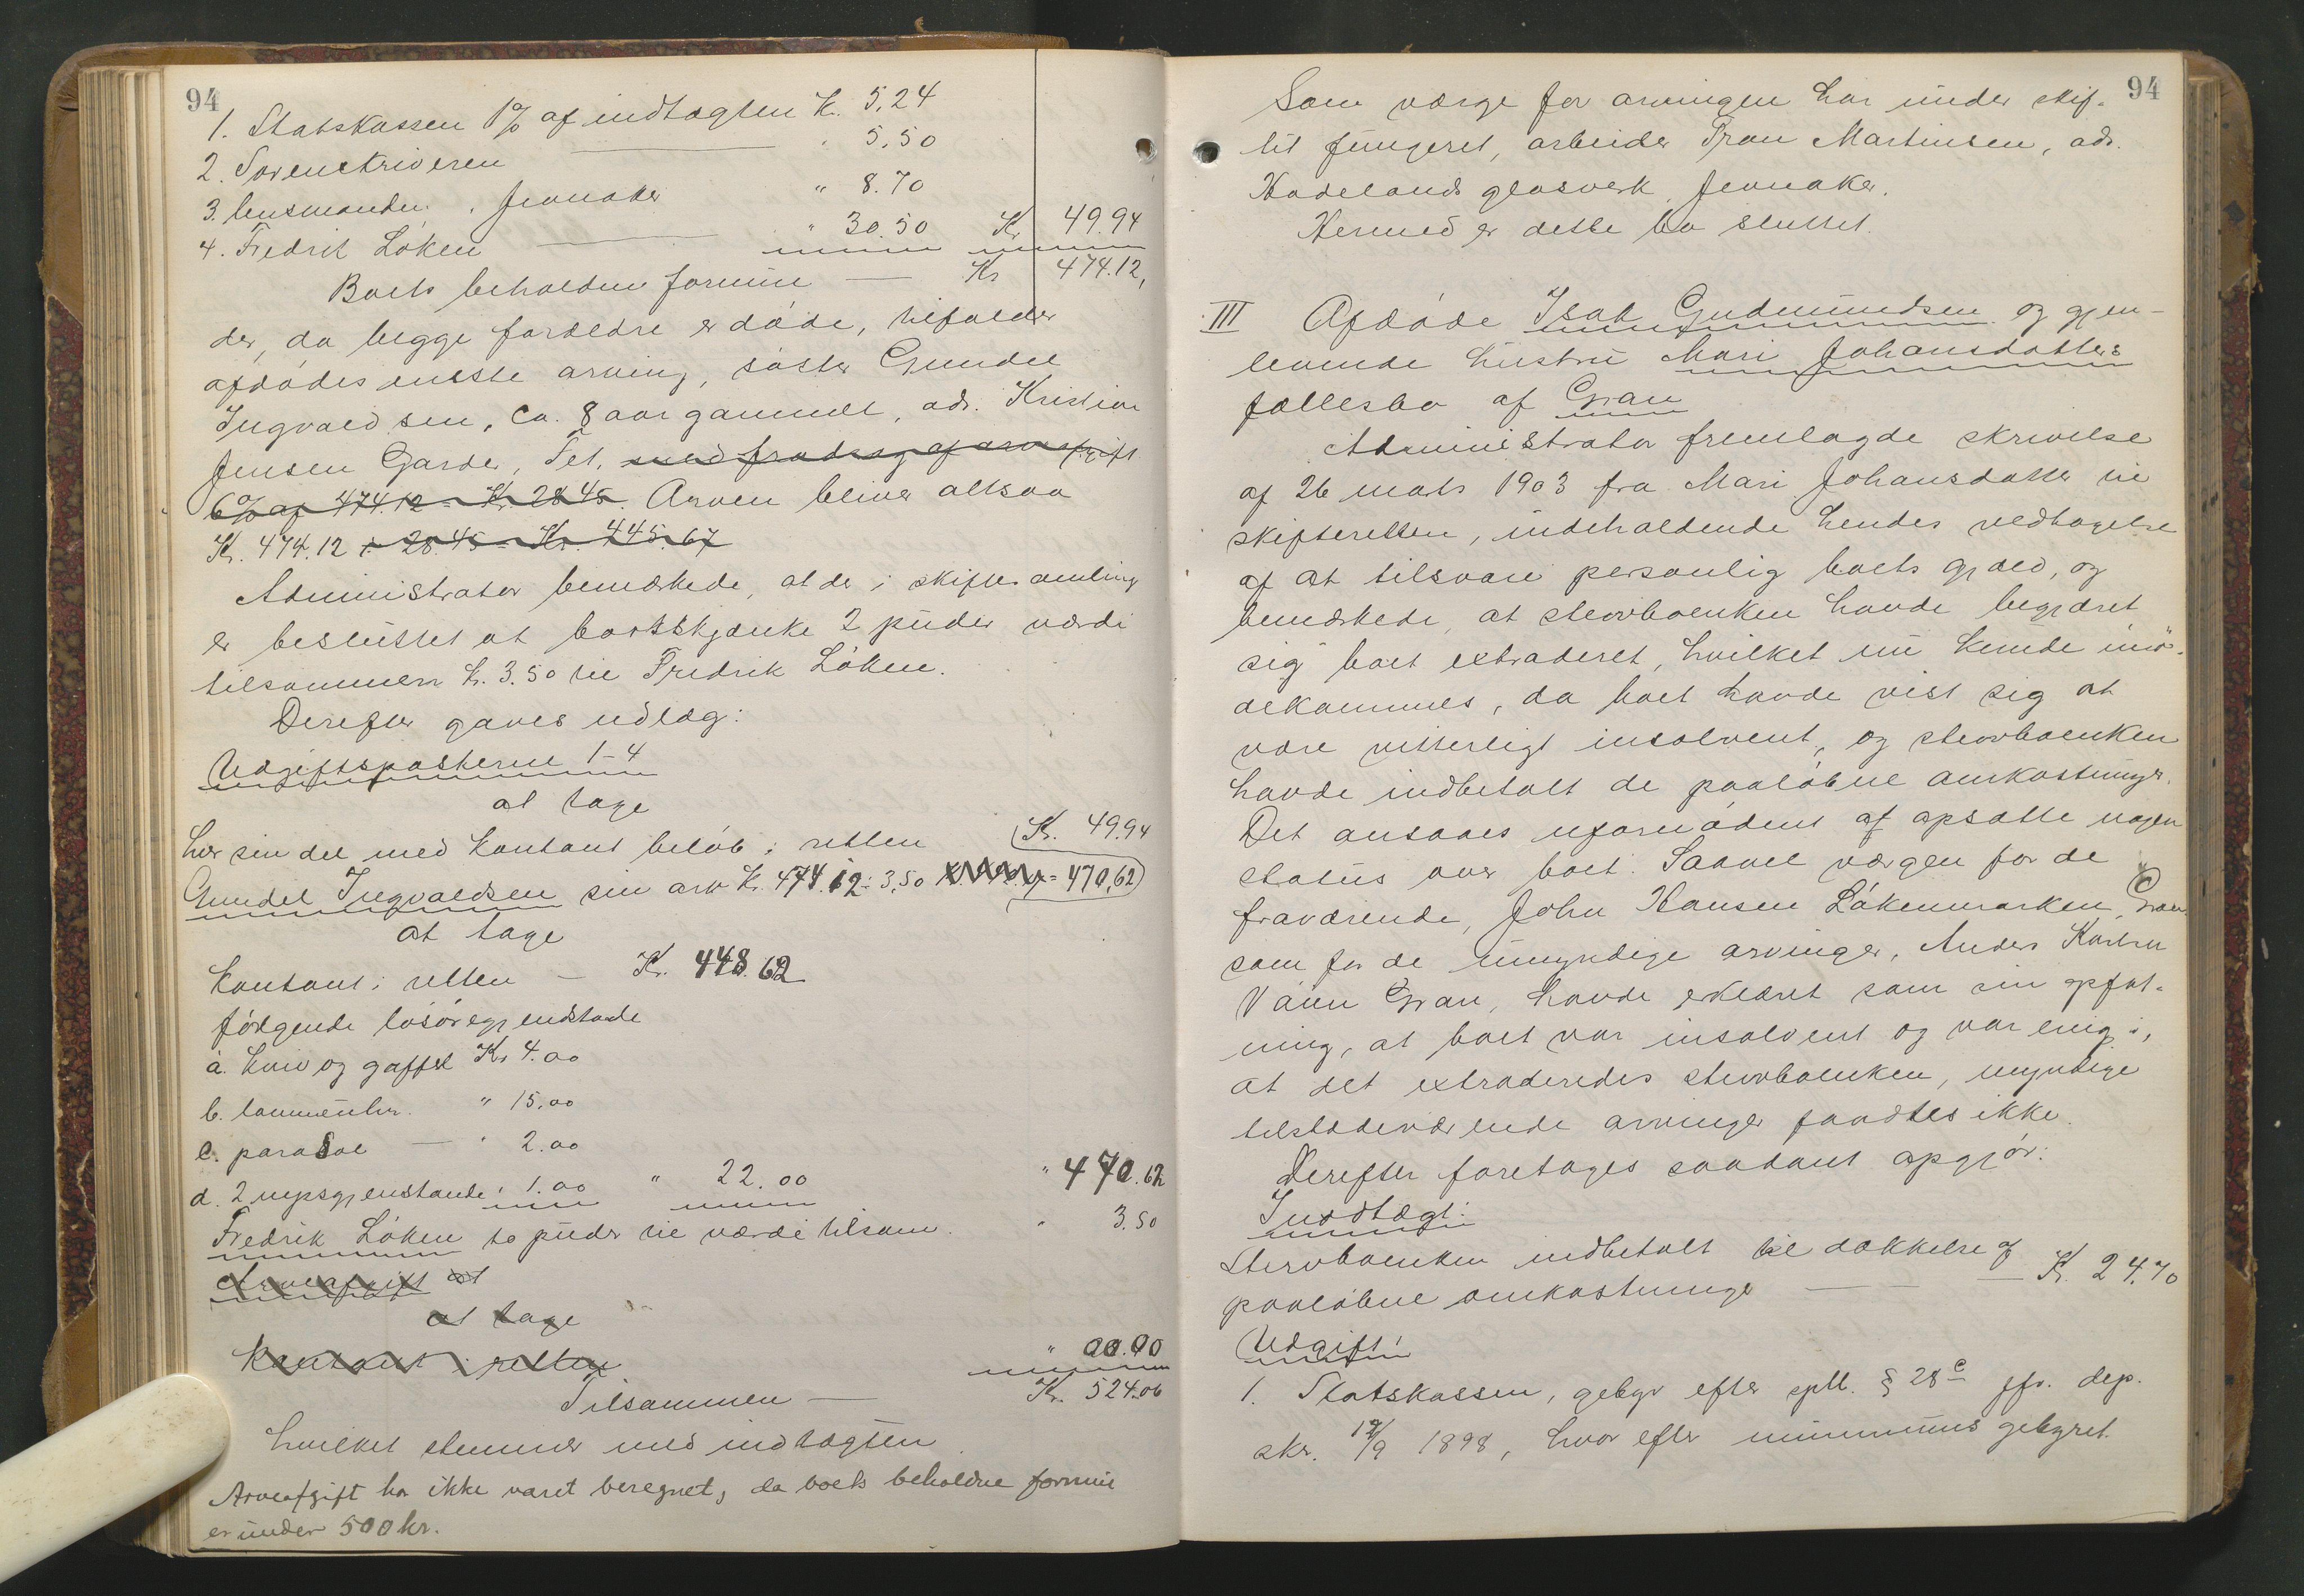 94
1. Statskassen 1% af indtægten Kr. 5,24
2. Sorenskriveren — " 5,50
3. lensmanden, Jevnaker " 8.70
4. Fredrik Löken — " 30.50 Kr. 49.94
Boets beholdne formue — Kr. 474.12,
der, da begge forældre er döde, tilfalder
afdödes eneste arving, söster Gundel
Ingvaldsen, ca. 8 aar gammel, adr. Kristian
Jensen Garder, Tel. med fradrag af arveafgift
6% af 474.12 = Kr. 28.45. Arven bliver altsaa
Kr. 474.12 ÷ 28.45 = Kr. 445.67
Administrator bemærkede, at der i skiftesamling
er besluttet at bortskjænke 2 puder værdi
tilsammen kr. 3.50 til Fredrik Löken.
Derefter gaves udlæg:
Udgiftsposterne 1-4
at tage
hver sin del med kontant belöb i retten Kr. 49.94
Gundel Ingvaldsen sin arv Kr. 474.12 ÷ 3,50 = 470,62
at tage
kontant i retten — Kr. 448.62
fölgende lösöregjendstande
a. kniv og gaffel Kr. 4.00
b. lommeuhr. " 15.00
c. parasol — " 2.00
d. 2 nipsgjenstande " 1.00 " 22.00 " 470.62
Fredrik Löken to puder til værdi tilsam. " 3.50
Arveafgift at
at tage
kontant i retten " 00.00
Tilsammen — Kr. 524.06
hvilket stemmer med indtægten.
Arveafgift har ikke været beregnet, da boets beholdne formue
er under 500 kr.
94
Som værge for arvingen har under skif-
tet fungeret, arbeider Tron Martinsen, adr.
Hadelands glasverk, Jevnaker.
Hermed er dette bo sluttet.
III Afdöde Isak Gudmundsen og gjen-
levende hustru Mari Johansdatters
fællesbo af Gran
Administrator fremlagde skrivelse
af 26 marts 1903 fra Mari Johansdatter til
skifteretten, indeholdende hendes vedtagelse
af at tilsvare personlig boets gjæld, og
bemærkede, at stervboenken havde begjæret
sig boet extraderet, hvilket nu kunde imö-
dekommes, da boet havde vist sig at
være vitterligt insolvent, og stervboenken
havde indbetalt de paalöbne omkostninger.
Det ansaaes ufornödent af opsætte nogen
status over boet. Saavel værgen for de
fraværende, John Hansen Lökenmarken, Gran
som for de umyndige arvinger, Anders Karlsen
Vöien Gran, havde erklæret som sin opfat-
ning, at boet var insolvent og var enig i,
at det extraderedes stervboenken, myndige
tilstedeværende arvinger fandtes ikke.
Derefter foretages saadant opgjör:
Indtægt:
Stervboenken indbetalt til dækkelse af
paalöbne omkostninger — Kr. 24.70
Udgift:
1. Statskassen, gebyr efter sptl. § 28 c jfr. dep.
skr. 12/9 1898, hvorefter minimumsgebyret